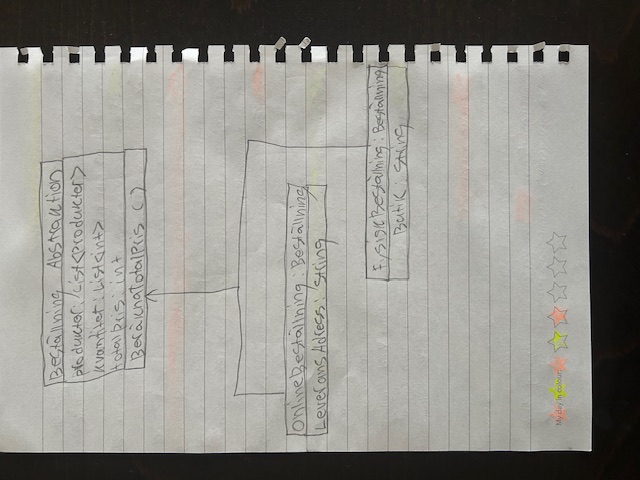 Beställning Abstraktion
produkter: List<Produkter>
kvantitet: List<int>
totalPris: int
BeräknaTotalPris ( )
OnlineBeställning: Beställning
LeveransAdress: String
FysiskBeställning: Beställning
Butik: String
My day in colour: